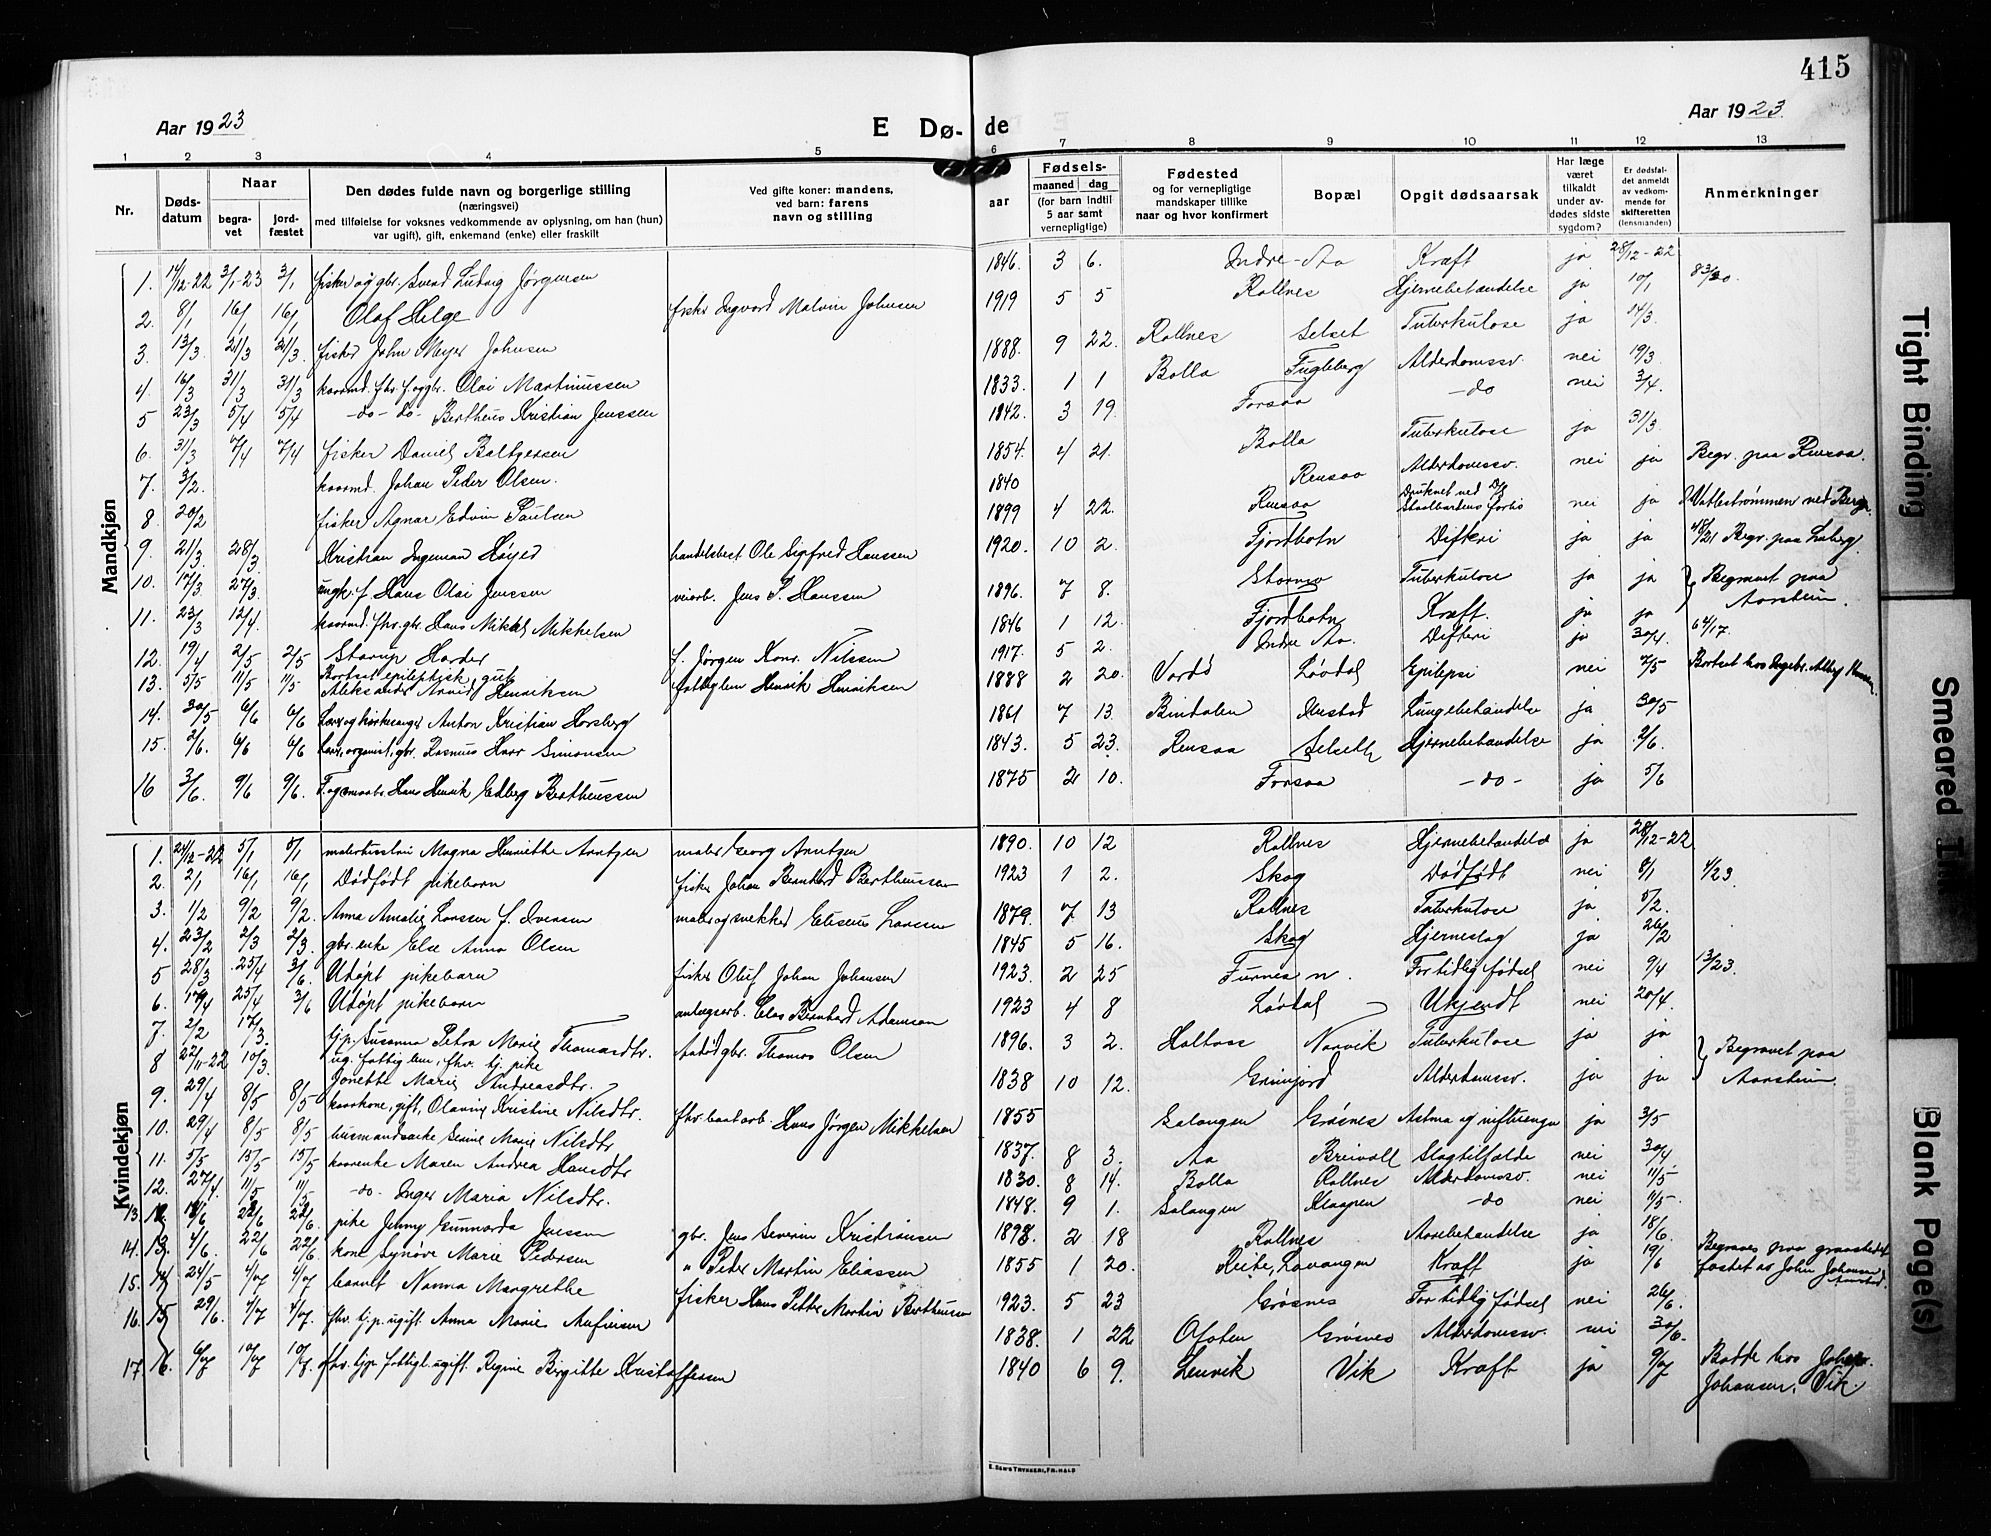 415
Aar 1923
E Dø-
de
Aar 1923
1 2 3 4 5 6 7 8 9 10 11 12 13
Nr.
Døds-
datum
Naar
begra-
vet
jord-
fæstet
Den dødes fulde navn og borgerlige stilling
(næringsvei)
med tilføielse for voksnes vedkommende av oplysning, om han (hun)
var ugift), gift, enkemand (enke) eller fraskilt
Ved gifte koner: mandens,
ved barn: farens
navn og stilling
aar
Fødsels-
maaned dag
(for barn indtil
5 aar samt
vernepligtige)
Fødested
og for vernepligtige
mandskaper tillike
naar og hvor konfirmert
Bopæl
Opgit dødsaarsak
Har læge
været
tilkaldt
under av-
dødes sidste
sygdom?
Er dødsfal-
det anmeldt
av vedkom-
mende for
skifteretten
(lensmanden)
Anmerkninger
Mandkjøn
1. 14/12-22 3/1-23 3/1 fisker og gbr. Svend Ludvig Jørgensen 1846. 3 6. Indre-Aa Kræft ja 28/12-22
2. 8/1 16/1 16/1 Olaf Helge fisker Ingvard Malvin Johnsen 1919 5 5 Rollnes Hjernebetændelse ja 10/1
3. 13/3 21/3 21/3 fisker John Meyer Johnsen 1888. 9 22. Rollnes Selset Tuberkulose ja 14/3.
4. 16/3 31/3 31/3 kaarmd. fhv. f. og gbr. Olai Martinussen 1833. 1 1 Bolla Fugleberg Alderdomssv. nei 19/3
5 23/3 5/4 5/4 -do-do- Bertheus Kristian Jenssen 1842. 3 19. Forsaa -do nei 3/4.
6. 31/3 7/4 7/4 fisker Daniel Baltzersen 1854. 4 21. Bolla Tuberkulose ja 31/3
7. 3/2. kaarmd. Johan Peder Olsen. 1840 Rensaa Alderdomssv. nei ja Begr. paa Rensaa.
8 20/2 fisker Agnar Edvin Paulsen 1899 4 22. Rensaa Druknet ved D/S forlis nei ja
9. 21/3 28/3. Kristian Ingeman Høyer handelsbest. Ole Sigfred Hanssen 1920. 10 2. Fjordbotn Difteri ja ja
10. 17/3 27/3. ungk. f. Hans Olai Jenssen veiarb. Jens P. Hanssen 1896. 7 8. Tuberkulose ja ja } Begravet paa
11. 23/3 12/4. kaarmd. fhv. gbr. Hans Mikal Mikkelsen 1846 1 12. Fjordbotn Kræft. ja ja Aarstein.
12. 19/4 2/5 2/5 Starup Harder f. Jørgen Konr. Nilssen 1917. 5 2. Indre Aa. Difteri ja 30/4. 64/17.
13. 5/5 11/5 11/5 Bortsat epileptisk gut
Aleksander Arvid Henriksen fattiglem Henrik Henriksen 1888 2 20. Vardø Løvdal Epilepsi nei 7/5
14. 30/5 6/6 6/6 Anton Kristian Horsberg 1861 7 13. Bindalen Lungebetændelse ja 30/5
15. 2/6. 6/6 6/6 organist, gbr. Rasmus Simonsen 1843. 5 23. Rensaa Selseth Hjernebetændelse ja 2/6.
16 3/6. 9/6 9/6. Hans Henrik Edberg Bertheussen 1875 2 10. Forsaa -do- ja 5/6
Kvindekjøn
1. 24/12-22 5/1 5/1 Magna Henriette Arntzen maler Georg Arntzen 1890. 10 12 Rollnes Hjernebetændelse ja 28/12-22
2. 2/1 16/1 16/1. Dødfødt pikebarn fisker Johan Bernhard Bertheussen 1923 1 2. Skog Dødfødt nei 8/1 4/23.
3. 1/2 9/2 9/2. Anna Amalie Larssen f. Ivensen maler og snekker Eliseus Larssen 1879. 7 13 Rollnes Tuberkulose ja 5/2.
4. 23/2 2/3 2/3. gbr. enke Else Anna Olsen 1845 5 16. Skog Hjerneslag ja 26/2
5 28/3 25/4 3/6. Udøpt pikebarn fisker Oluf Johan Johansen 1923. 2 25 Furnes n. For tidlig fødsel nei 9/4 13/23.
6. 17/4 25/4 3/6 Udøpt pikebarn anlægsarb. Elas Bernhard Adamsen 1923 4 8 Løvdal Ukjendt nei 20/4.
7. 2/2 17/3. tj.p. Susanna Petra Marie Thomasdtr. gbr. Thomas Olsen 1896. 3 2. Narvik Tuberkulose ja ja } Begravet paa
8 22/11-22 10/3. ug. fattiglem, fhv. tj. pike
Jonette Marie Andreasdtr. 1838 10 12. Grimjord Alderdomssv. ja ja Aarstein.
9. 29/4 8/5 8/5 kaarkone, gift, Olavine Kristine Nilsdtr. fhv. baatarb. Hans Jørgen Mikkelsen 1855 Salangen Grøsnes Astma og influenza ja 3/5
10. 29/4 8/5 8/5 husmandsenke Serine Marie Nilsdtr 1837. 8 3. Aa Breivoll Slagtilfælde nei 30/4
11. 5/5 15/5 15/5 kaarenke Maren Andrea Hansdtr 1830. 8 14. Bolla Rollnes Alderdomssv. nei 11/5
12. 27/4. 11/5 11/5 -do. Inger Maria Nilsdtr. 1848. 9 1. Salangen -do nei 11/5.
13 22/6 22/6. pike Jenny Gunnarda Jenssen gbr. Jens Severin Kristiansen 1898. 2 18 Rollnes ja 18/6.
14. 13. 4/6. 22/6 22/6 kone Synøve Marie Pedersen " Peder Martin Eliassen 1855 1 20. Reite, Lavangen Kræft ja 19/6 Begraves paa gravstedet
15. 14 24/5 4/7 4/7 barnet Nanna Margrethe fisker Hans Petter Martin Bertheussen 1923. 5 23 Grøsnes For tidlig fødsel nei 26/6. John Johansen
16. 15 29/6. 4/7 4/7. fhv. tj.p. ugift. Anna Marie 1838. 1 22 Ofoten Grøsnes Alderdomssv. nei 30/6.
17. 16. 6/7 10/7 10/7. fhv. tjp. fattigl. ugift. Regine Birgitte Kristoffersen 1840 6 9. Lenvik Vik Kræft ja 9/7 Bodde hos
Johansen, Vik.
E. SEM'S TRYKKERI, FR.HALD
Tight Binding
Smeared Ink
Blank Page(s)